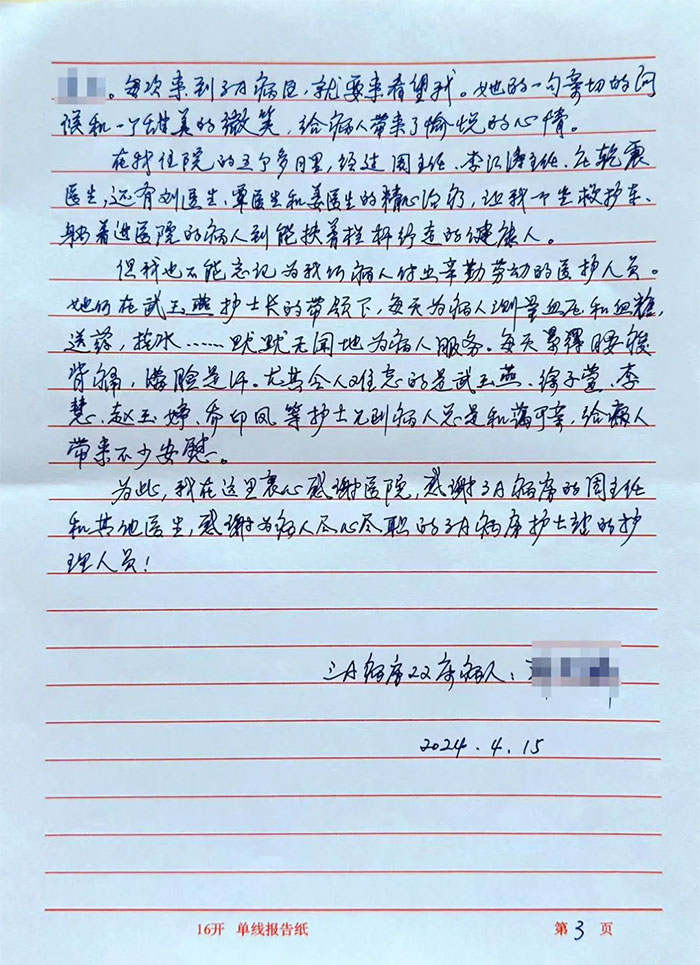 。每次来到3A病区，就要来看望我。她的一句亲切的问
候和一个甜美的微笑，给病人带来了愉悦的心情。
在我住院的五个多月里，经过周主任、李江涛主任、乾震
医生，还有刘医生、覃医生和姜医生的精心治疗，让我一个坐救护车、
躺着进医院的病人到能扶着栏杆行走的健康人。
但我也不能忘记为我们病人付出辛勤劳动的医护人员。
她们在武玉燕护士长的带领下，每天为病人测量血压和血糖，
送药，挂水……默默无闻地为病人服务。每天累得腰酸
背痛，满脸是汗。尤其令人难忘的是武玉燕、徐子萱、李
慧、赵玉婷、乔印凤等护士见到病人总是和蔼可亲，给病人
带来不少安慰。
为此，我在这里衷心感谢医院，感谢3A病房的周主任
和其他医生，感谢为病人尽心尽职的3A病房护士站的护
理人员！
三A病房22床病人：
2024.4.15
16开 单线报告纸
第 3 页